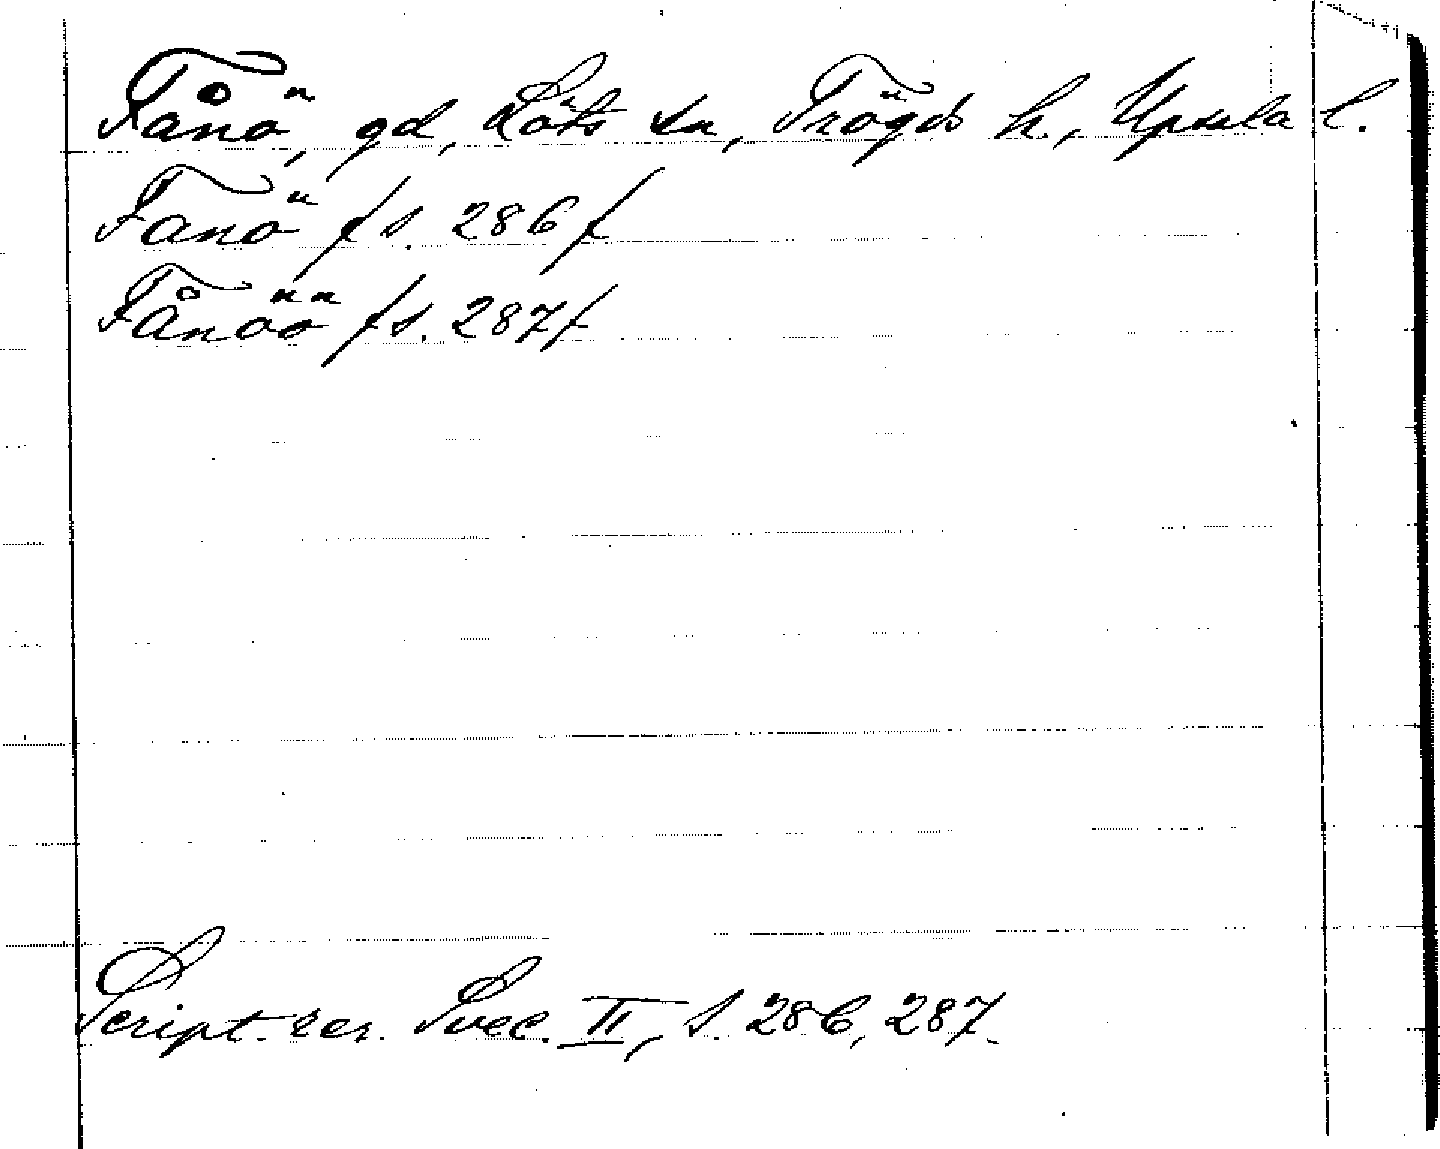 Fånö, gd, Löts sn, Trögds h., Upsala l.
Fanö /s. 286/
Fånöö /s. 287/
Script. rer. Svec. II, s. 286, 287.